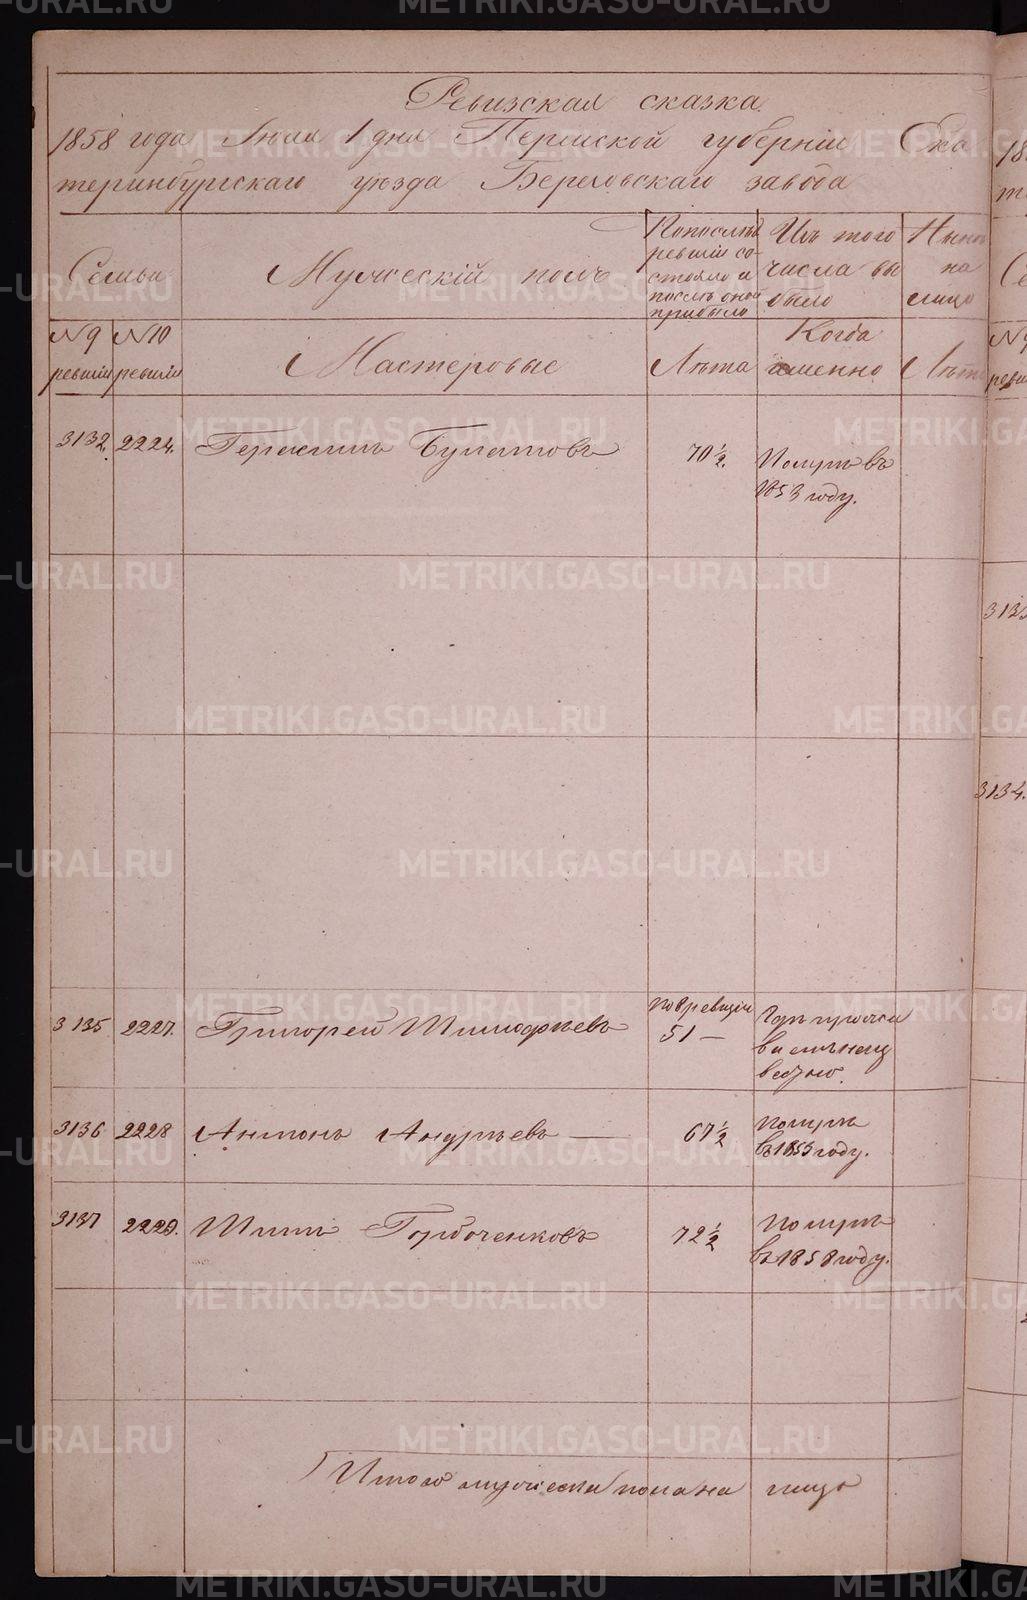 Ревизская сказка
1858 года Июля 1 дня Пермской губерніи Ека
теринбургскаго уѣзда Березовскаго завода
Семьи
Мужескій полъ
По послѣд
ревизіи со-
стояло и
послѣ оной
прибыло
Изъ того
числа вы
было
Нынѣ
на
лицо
№ 9
ревизіи
№ 10
ревизіи
Мастеровые
Лѣта
Когда
именно
Лѣта
3132. 2224. Герасимъ Булатовъ 70 ½. Померъ въ
1853 году.
3135 2227. Григорей Тимофѣевъ По 8 ревизіи
51 —
3136 2228 Антонъ Андрѣевъ — 67 ½ померъ
въ 1853 году.
3137 2229. Титъ Горбоченковъ 72 ½ померъ
въ 1858 году.
Итого мужеска пола на лицо
3134.
METRIKI.GASO-URAL.RU